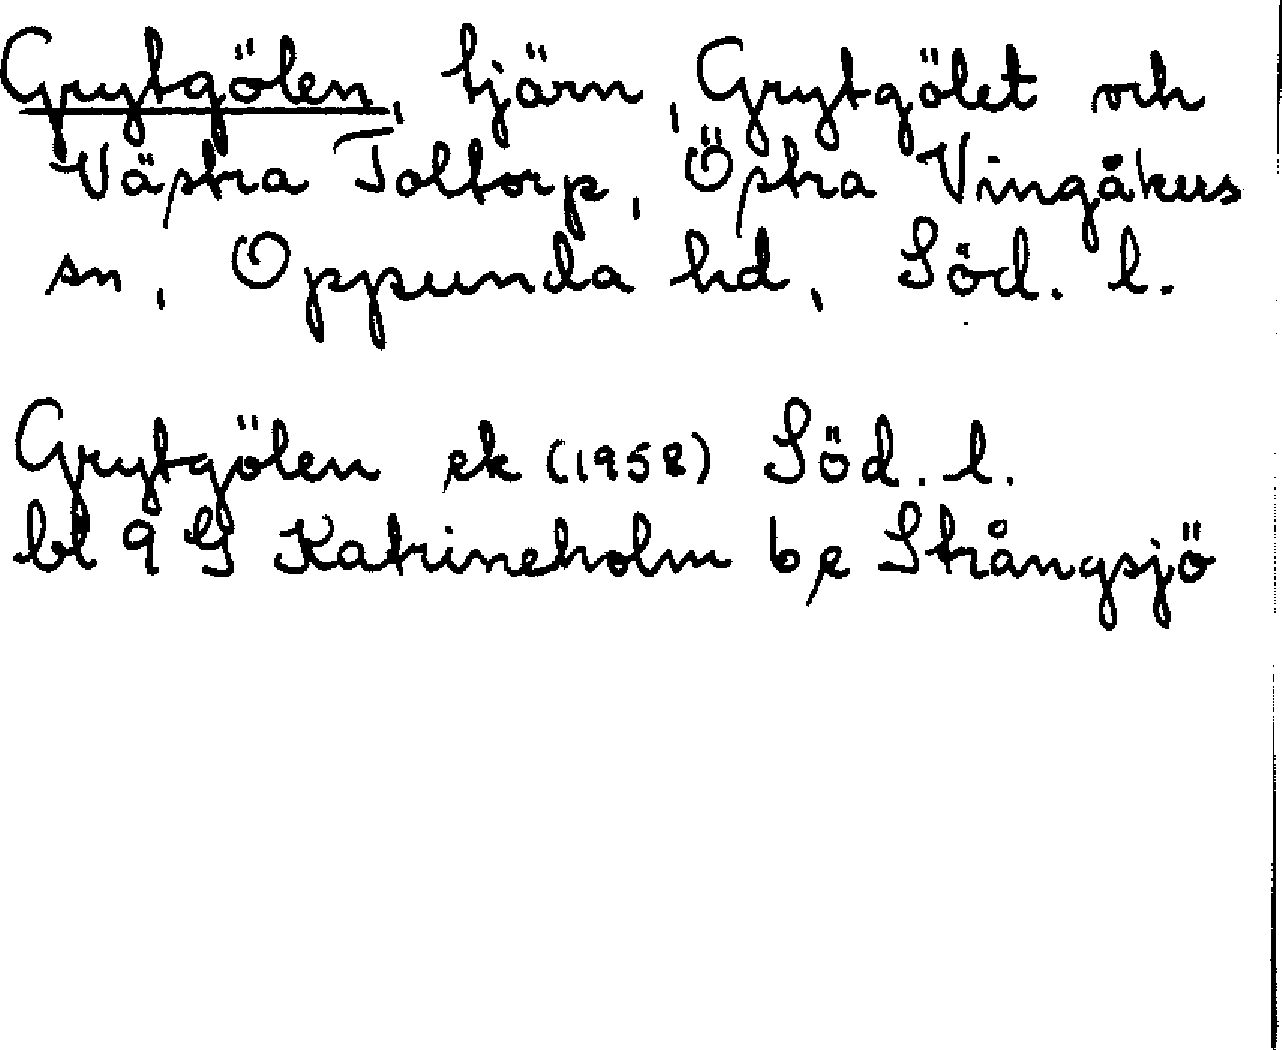 Grytgölen, tjärn, Grytgölet och
Västra Toltorp, Östra Vingåkers
sn, Oppunda hd, Söd. l.
Grytgölen ek (1958) Söd. l.
bl 9 G Katrineholm b,e Strångsjö